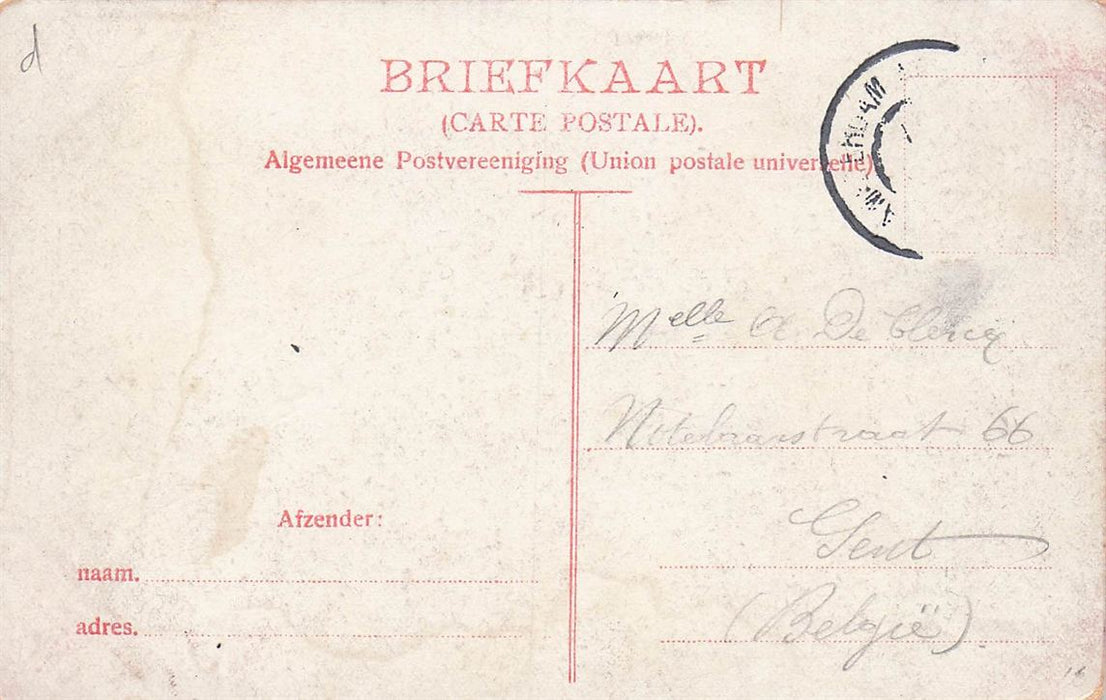 d
BRIEFKAART
(CARTE POSTALE).
Algemeene Postvereeniging (Union postale universelle)
Melle A. De Clercq
straat 66
Gent
(België)
Afzender:
naam.
adres.